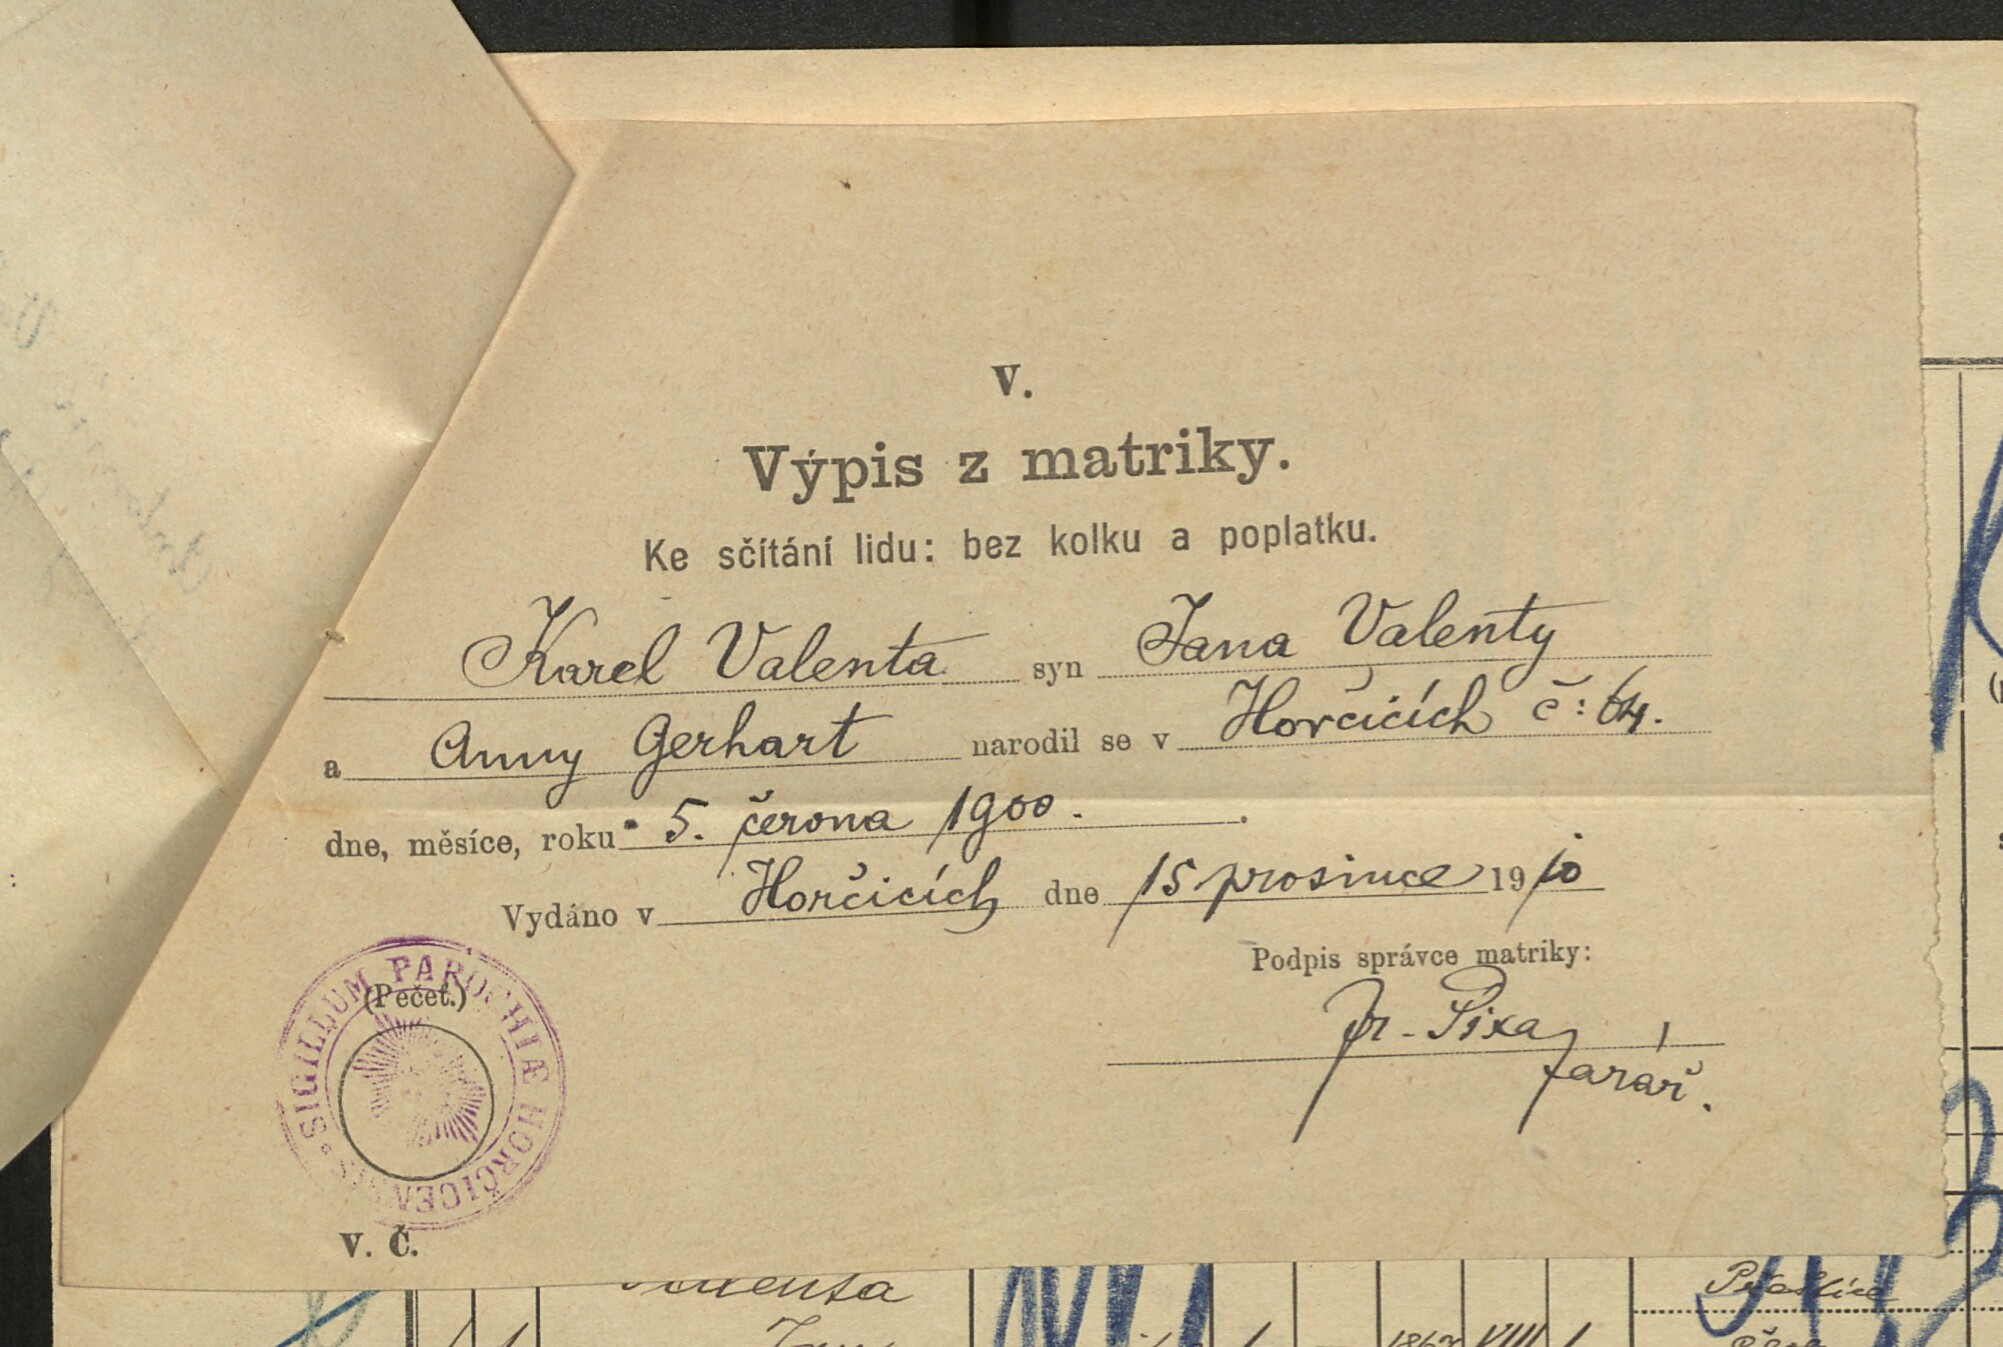 V.
Výpis z matriky.
Ke sčítání lidu: bez kolku a poplatku.
Karel Valenta syn Jana Valenty
a Anny Gerhart narodil se v Horčicích č: 64.
dne, měsíce, roku 5. června 1900.
Vydáno v Horčicích dne 15 prosince 1910
Podpis správce matriky:
(Pečeť.)
SIGILLUM PAROCHIÆ HORČICENSIS
Fr. Pixa
farář.
V. Č.
Valenta
Jan
1867 VIII 1